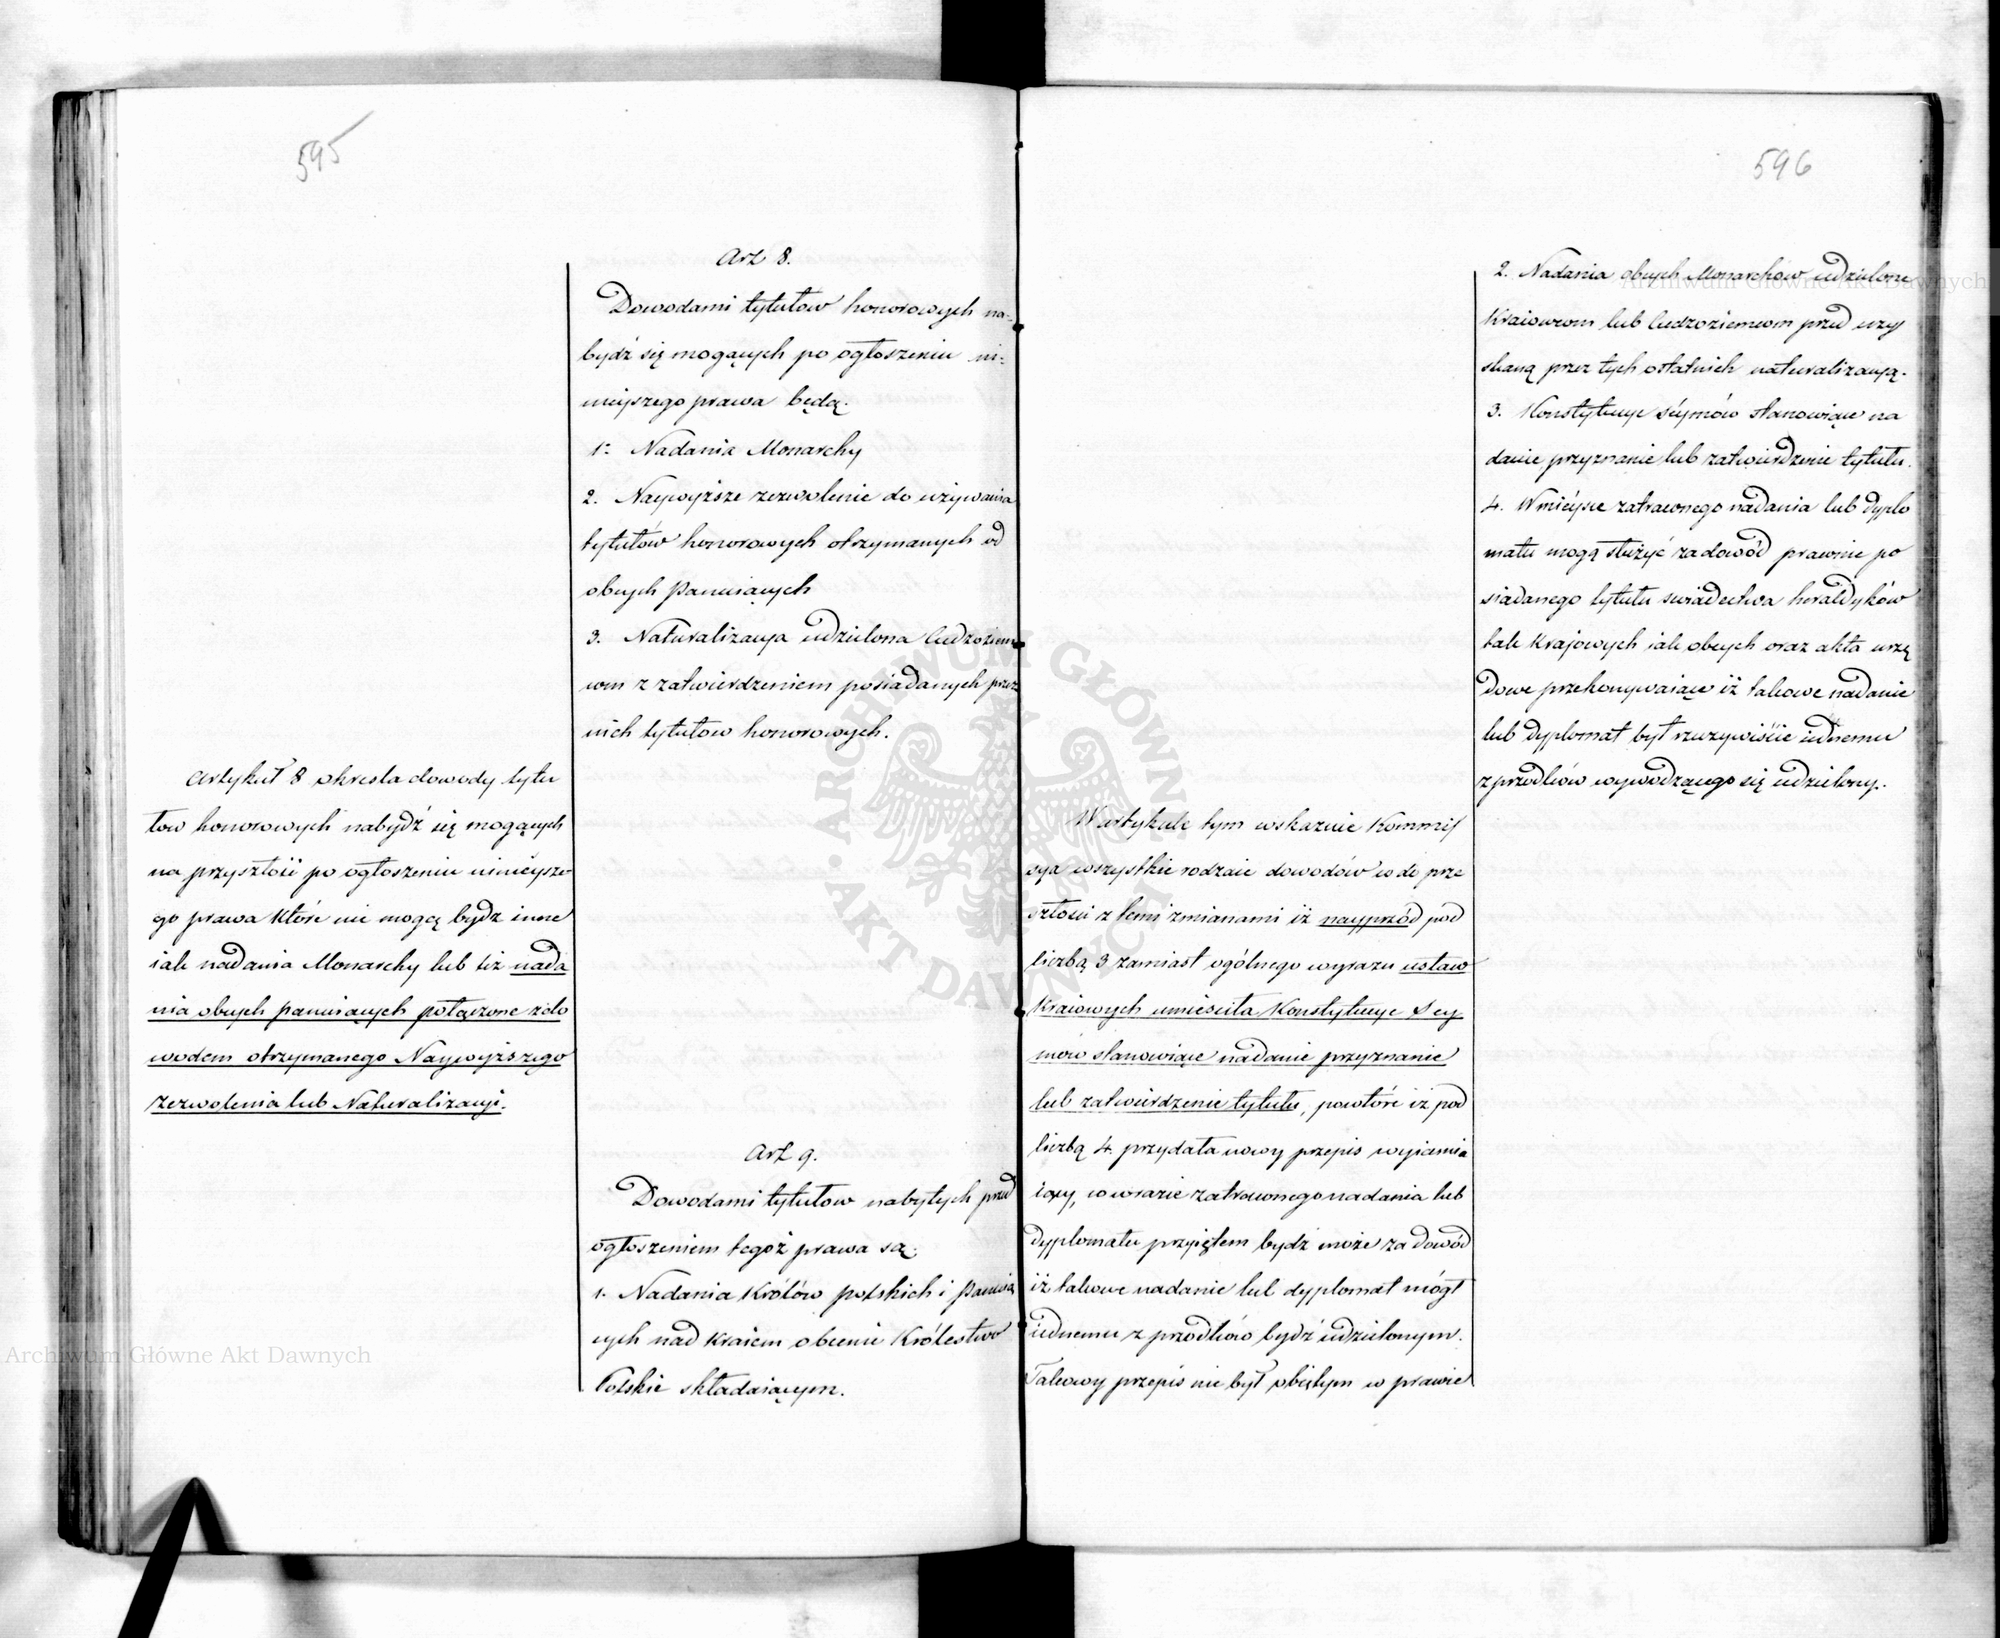 595
Art 8.
Dowodami tytułow honorowych na-
bydź się mogących po ogłoszeniu ni-
nieyszego prawa będą.
1. Nadania Monarchy
2. Naywyższe zezwolenie do używania
tytułów honorowych otrzymanych od
obcych Panuiących
3. Naturalizacya udzielona Cudzoziem
com z zatwierdzeniem posiadanych przez
nich tytułow honorowych.
Artykuł 8 okresla dowody tytu
łow honorowych nabydź się mogących
na przyszłość po ogłoszeniu ninieysze-
go prawa które nie mogą bydz inne
iak nadania Monarchy lub też nada
nia obcych panuiących połączone z do
wodem otrzymanego Naywyższego
zezwolenia lub Naturalizacyi.
Art 9.
Dowodami tytułow nabytych przed
ogłoszeniem tegoż prawa są.
1. Nadania Królów polskich i Panuią
cych nad kraiem obecnie Królestwo
Polskie składaiącym.
596
2. Nadania obcych Monarchów udzielone
Kraiowcom lub Cudzoziemcom przed uzy
skaną przez tych ostatnich naturalizacyą.
3. Konstytucye séymów stanowiące na
danie przyznanie lub zatwierdzenie tytułu.
4. W miéysce zatraconego nadania lub dyplo
matu mogą służyć za dowód prawnie po
siadanego tytułu swiadectwa heraldyków
tak Krajowych iak obcych oraz akta urzę
dowe przekonywaiące iż takowe nadanie
lub dyplomat był rzeczywiście iednemu
z przodków wywodzącego się udzielony.
W artykule tym wskazuie Kommis
sya wszystkie rodzaie dowodów co do prze
szłości z temi zmianami iż nayprzód pod
liczbą 3 zamiast ogólnego wyrazu ustaw
Kraiowych umieściła Konstytucye Sey
mów stanowiące nadanie przyznanie
lub zatwierdzenie tytułu, powtóre iż pod
liczbą 4. przydała nowy przepis wyiaśnia
iący, co w razie zatraconego nadania lub
dyplomatu przyiętem bydź może za dowód
iż takowe nadanie lub dyplomat mógł
iednemu z przodków bydź udzielonym.
Takowy przepis nie był obiętym w prawie
ARCHIWUM GŁÓWNE
AKT DAWNYCH
Archiwum Główne Akt Dawnych
Archiwum Główne Akt Dawnych